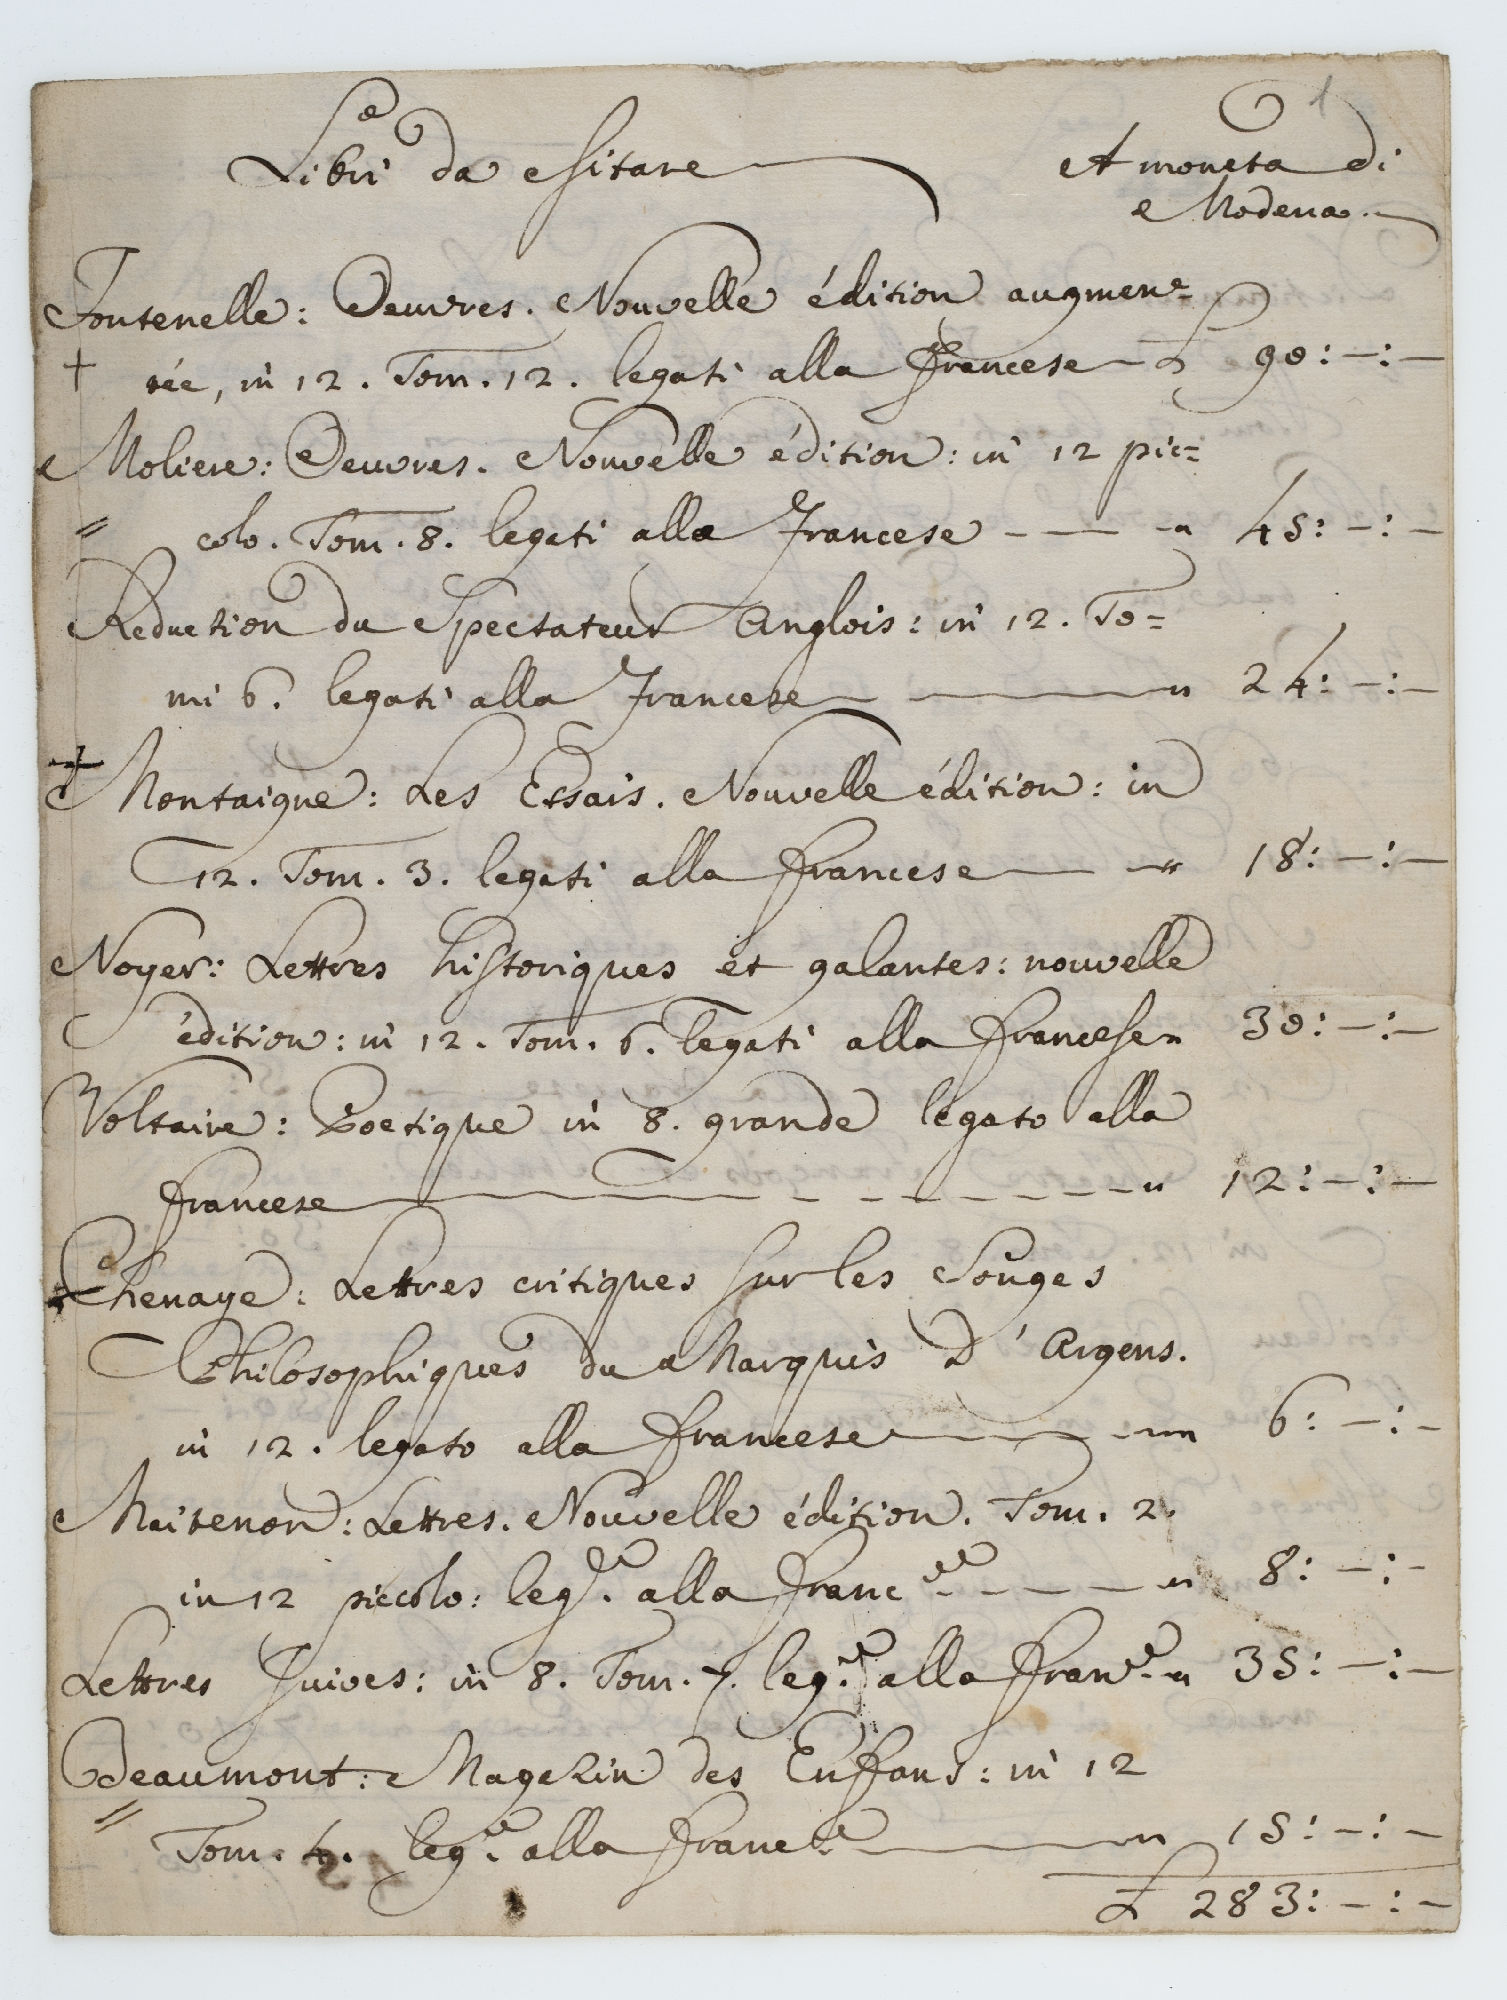 1
Libri da esitare
A moneta di
Modena.
Fontenelle: Oeuvres. Nouvelle édition augmen=
tée, in 12. Tom. 12. legati alla francese £ 90: – : –
Moliere: Oeuvres. Nouvelle édition: in 12 pic=
colo. Tom. 8. legati alla Francese – — " 45: – : –
Reduction du Spectateur Anglois: in 12. To=
mi 6. legati alla Francese — " 24: – : –
Montaigne: Les Essais. Nouvelle édition: in
12. Tom. 3. legati alla francese — " 18: – : –
Noyer: Lettres historiques et galantes: nouvelle
édition: in 12. Tom. 6. legati alla francese " 30: – : –
Voltaire: Poetique in 8. grande legato alla
francese — – – – – – – " 12: – : –
Chenaye: Lettres critiques sur les Songes
Philosophiques du Marquis D'Argens.
in 12. legato alla francese — " 6: – : –
Maitenon: Lettres. Nouvelle édition. Tom. 2.
in 12 piccolo: leg.i alla franc.e – – – – " 8: – : –
Lettres Juives: in 8. Tom. 7. leg.ti alla fran.e " 35: – : –
Beaumont: Magazin des Enffans: in 12
Tom. 4. leg.ti alla franc.e — " 15: – : –
£ 283: – : –